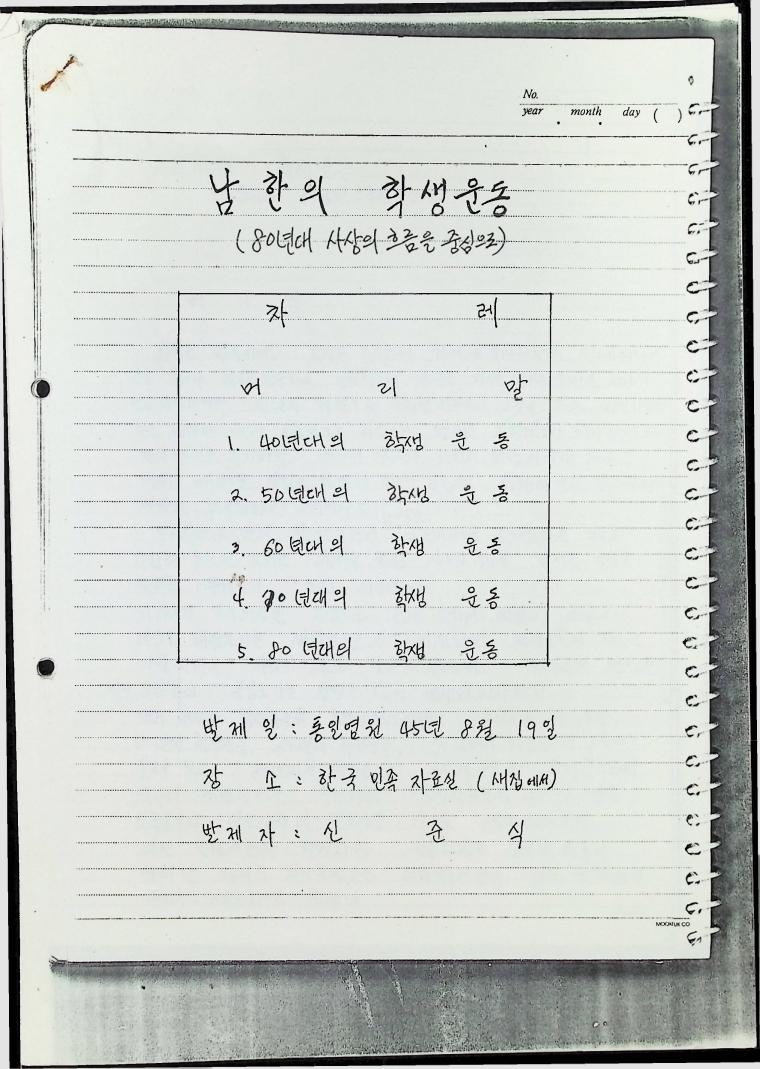 No.
year . month . day ( )
남한의 학생운동
(80년대 사상의 흐름을 중심으로)
차 레
머 리 말
1. 40년대의 학생 운동
2. 50년대의 학생 운동
3. 60년대의 학생 운동
4. 70년대의 학생 운동
5. 80년대의 학생 운동
발제일 : 통일염원 45년 8월 19일
장 소 : 한국 민족 자료실 (새집에서)
발제자 : 신 준 식
MOONJUK CO